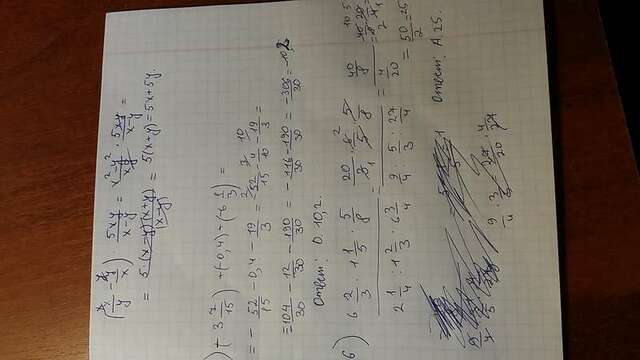 (x/y - y/x) · 5xy/(x-y) = (x²-y²)/xy · 5xy/(x-y) =
= 5·(x-y)(x+y)/(x-y) = 5(x+y) = 5x+5y.
) (- 3 7/15) + (-0,4) + (-6 1/3) =
= - 52/15 - 0,4 - 19/3 = -52/15 - 4/10 - 19/3 =
= -104/30 - 12/30 - 190/30 = -116/30 - 190/30 = -306/30 = -10,2
Ответ: О. 10,2.
6) (6 2/3 · 1 1/5 · 5/8)/(2 1/4 : 1 2/3 : 6 3/4) = (20/3 · 6/5 · 5/8)/(9/4 : 5/3 : 27/4) = (40/8)/(4/20) =
= 50/2 = 25
Ответ: А. 25.
9/4 · 3/5